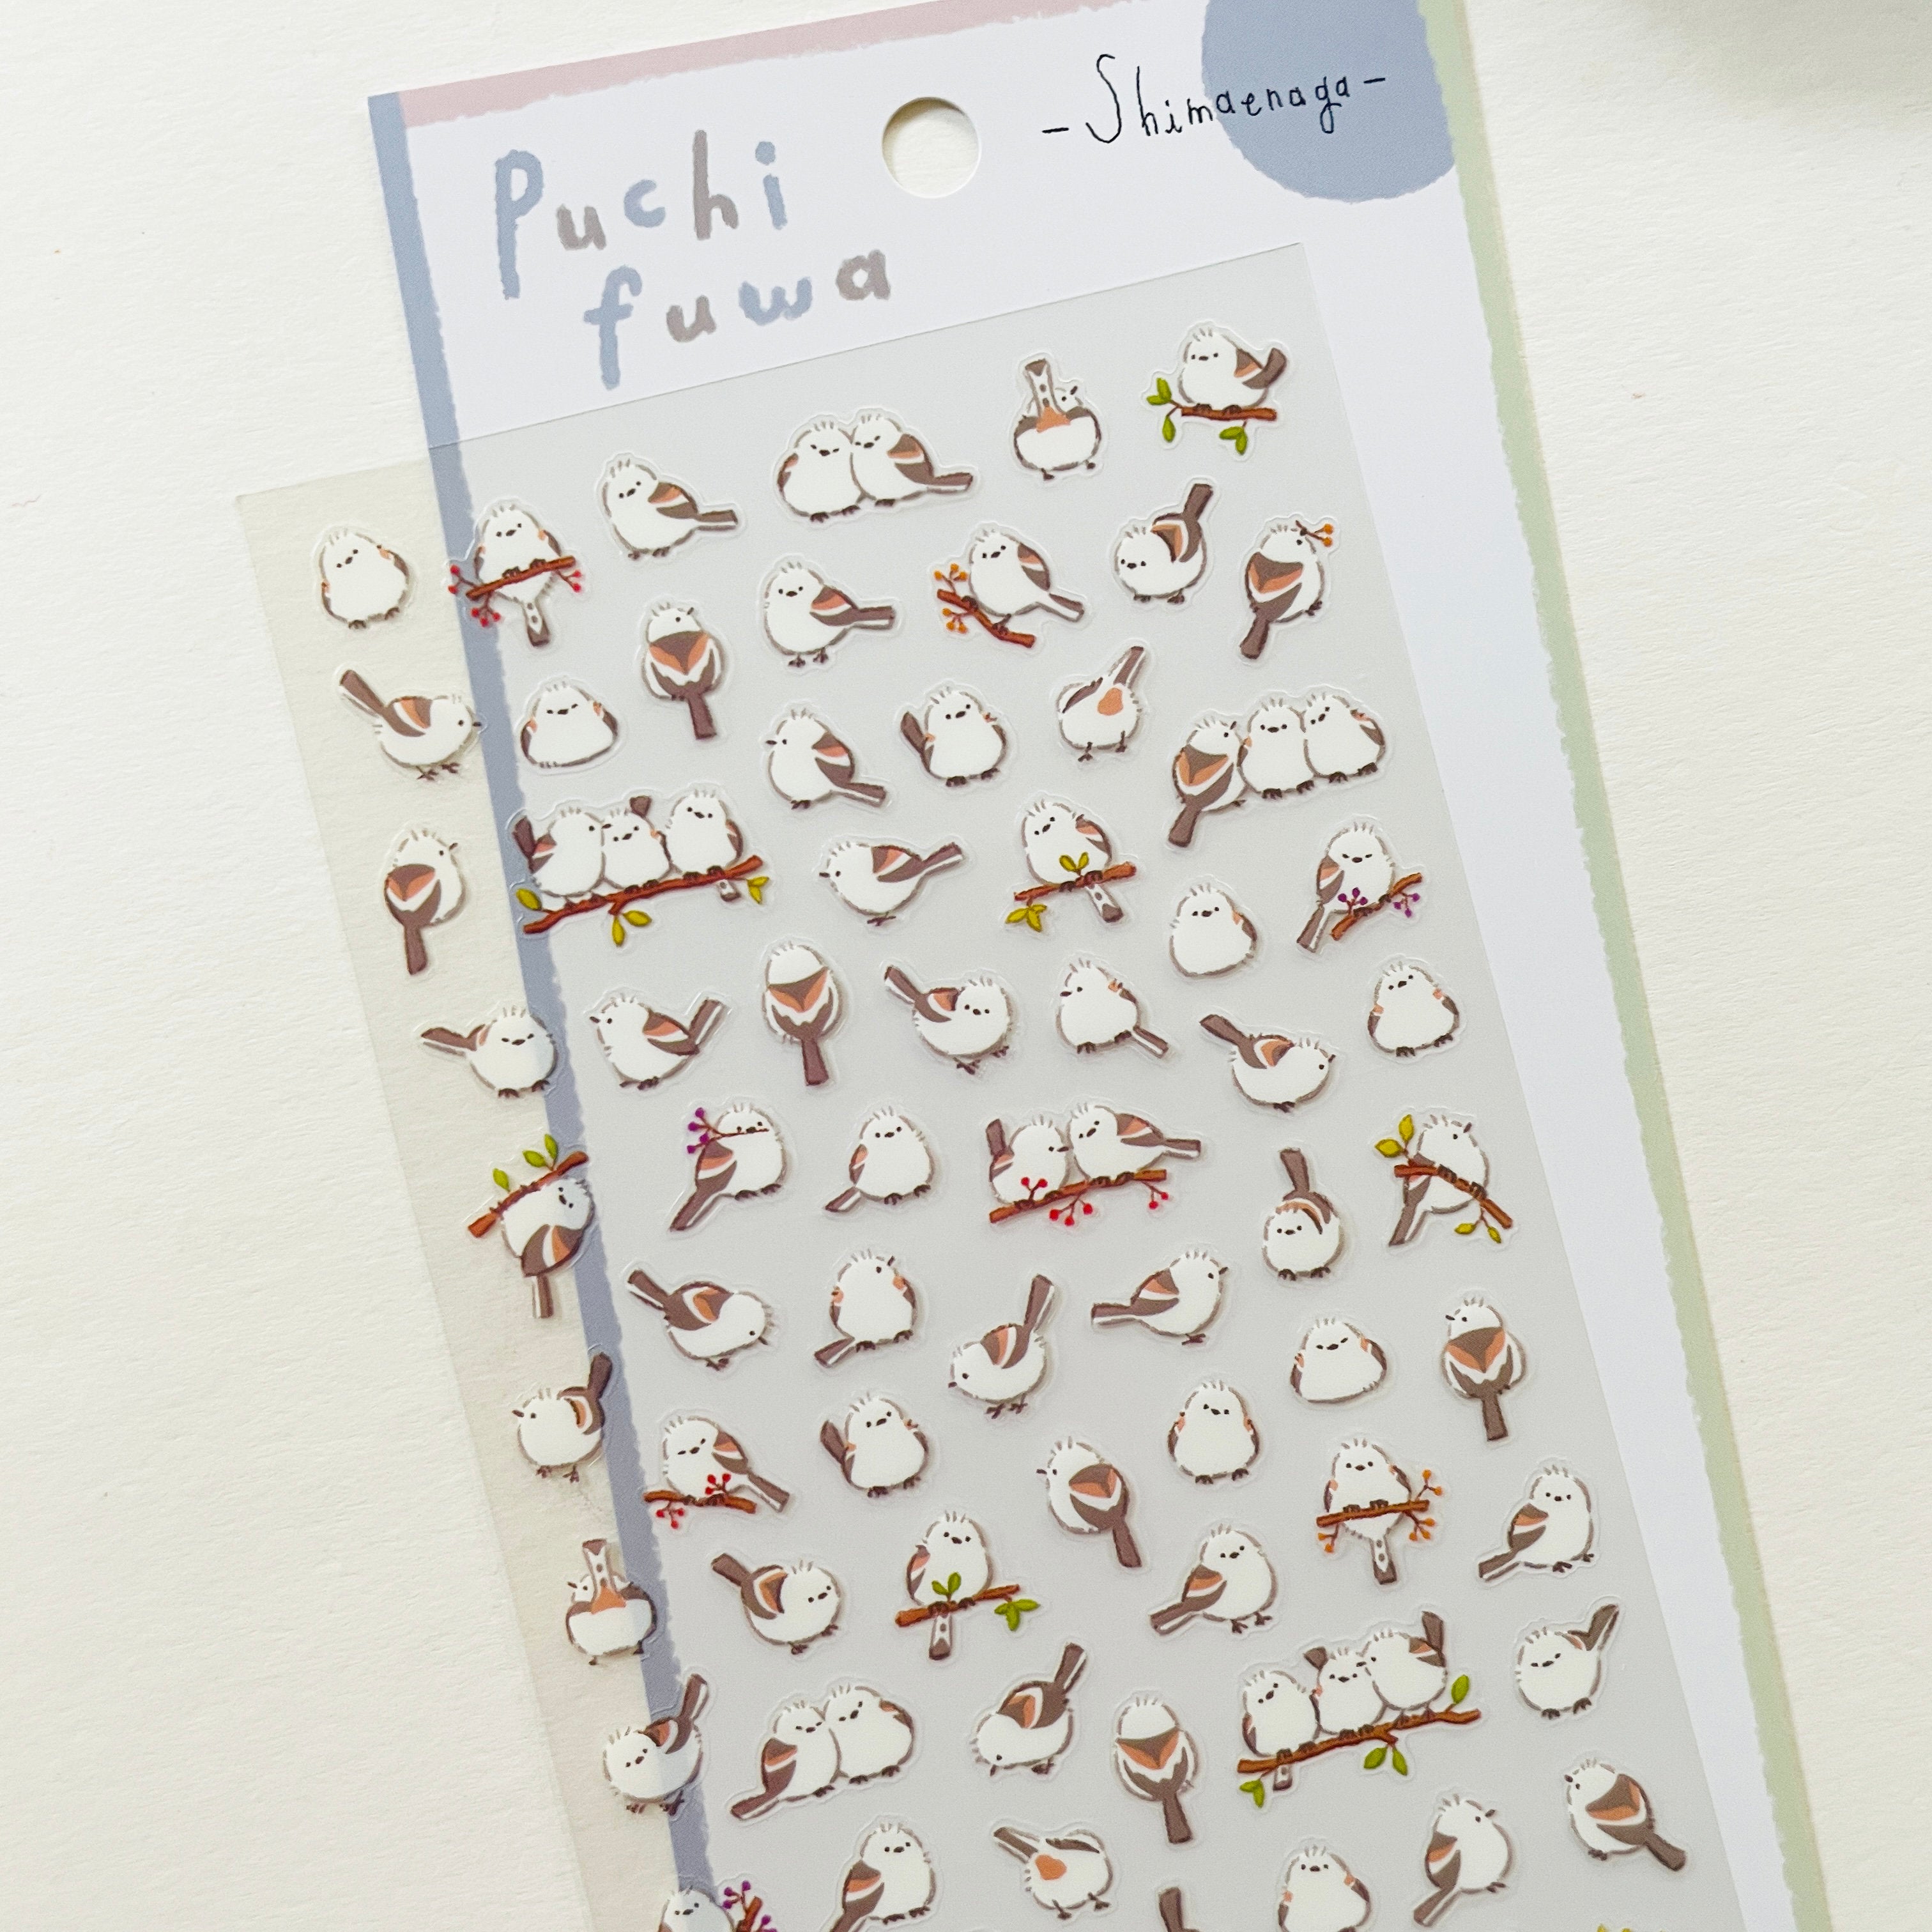 Puchi
fuwa
-Shimaenaga-